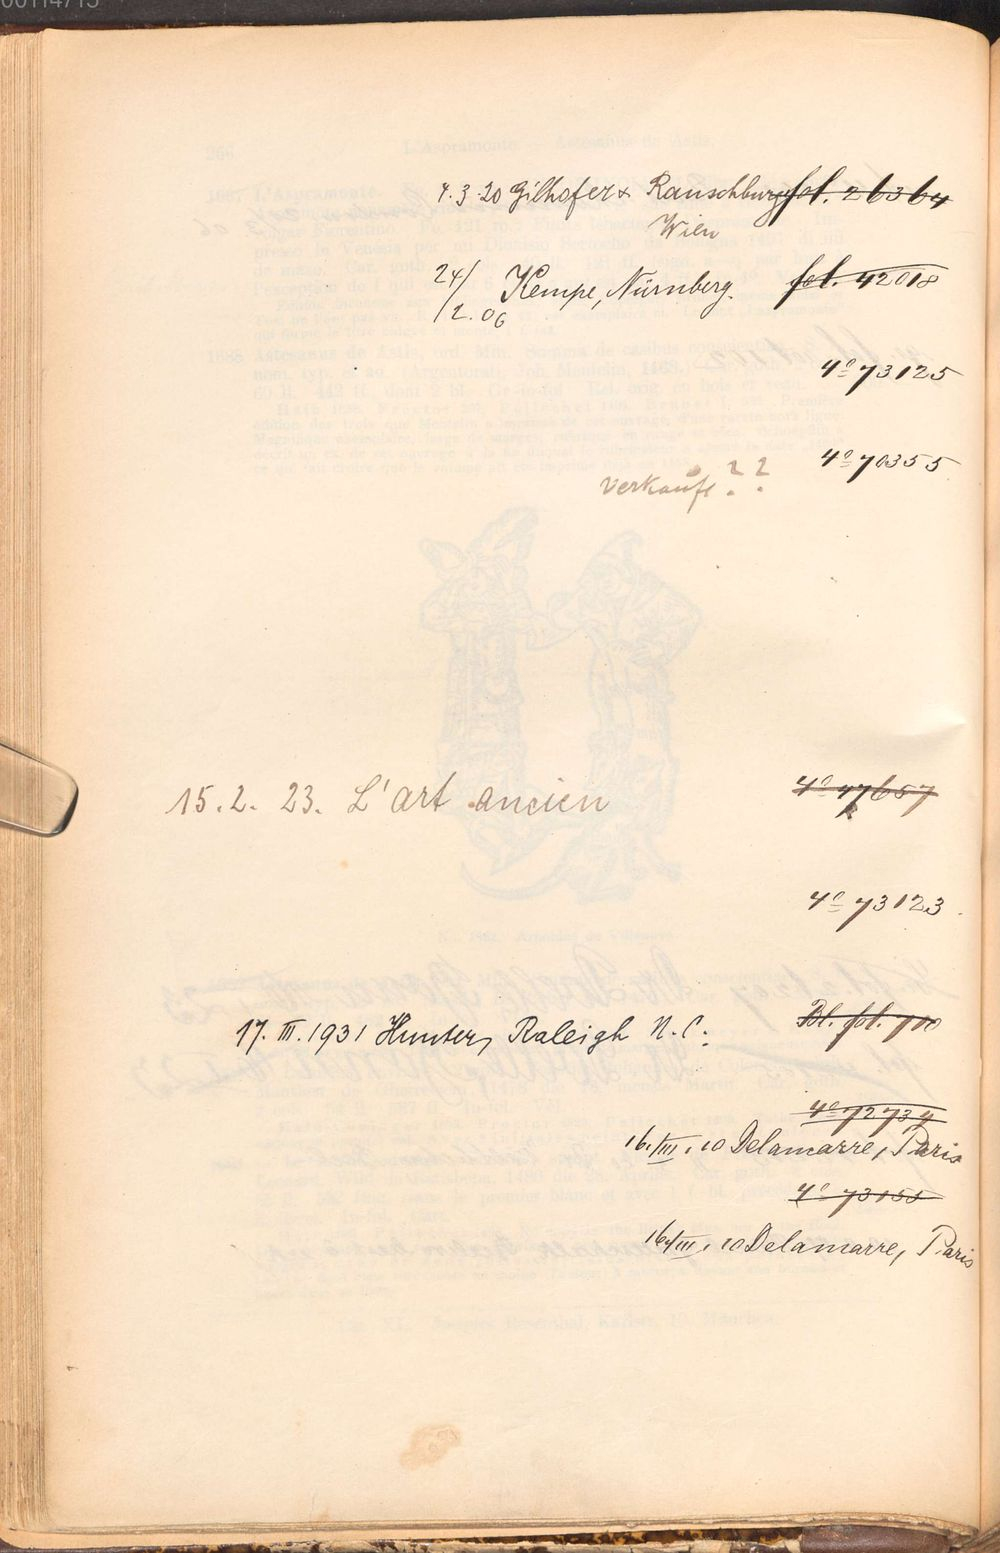 00114715
4.3.20 Gilhofer & Ranschburg fol. 26364
Wien
24/ Kempe, Nürnberg. fol. 42018
/2.06
4º 73125
4º 70355
verkauft ? ?
15.2. 23. L'art ancien 4º 47657
4º 73123
17. III. 1931 Hunter, Raleigh N.C. Bl. fol. 700
4º 72734
16./III. 10 Delamarre, Paris
4º 73155
16./III. 10 Delamarre, Paris